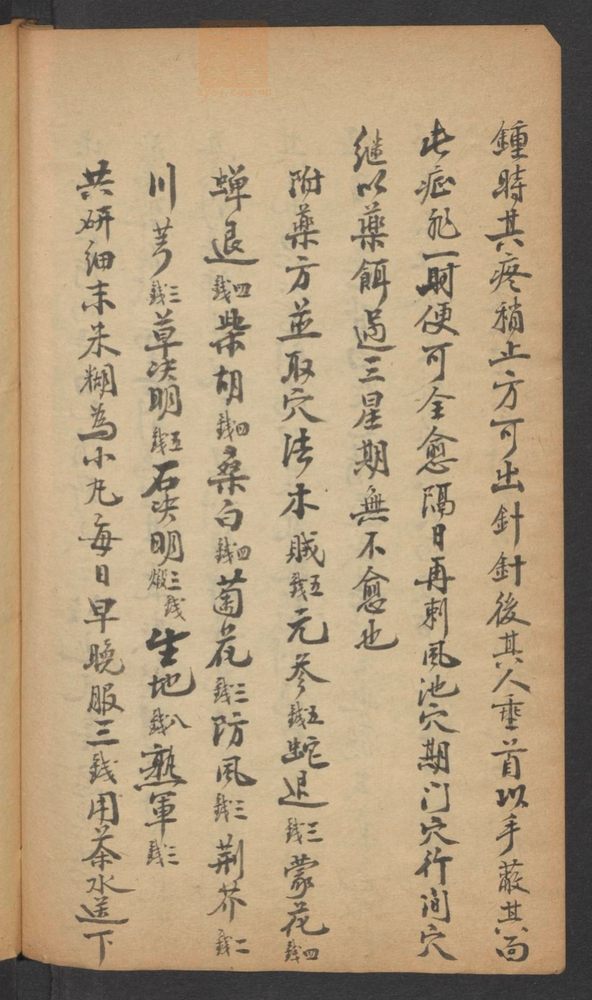 鍾時其疼稍止方可出針針後其人垂首以手蔽其面
此症形一時便可全愈隔日再刺風池穴期门穴行间穴
继以藥餌過三星期無不愈也
附藥方並取穴法木賊五錢元參五錢蛇退三錢蒙花四錢
蟬退四錢柴胡四錢桑白四錢菊花三錢防風三錢荆芥二錢
川芎三錢草决明五錢石决明煅三錢生地八錢熟軍三錢
共研細末米糊為小丸每日早晚服三錢用茶水送下